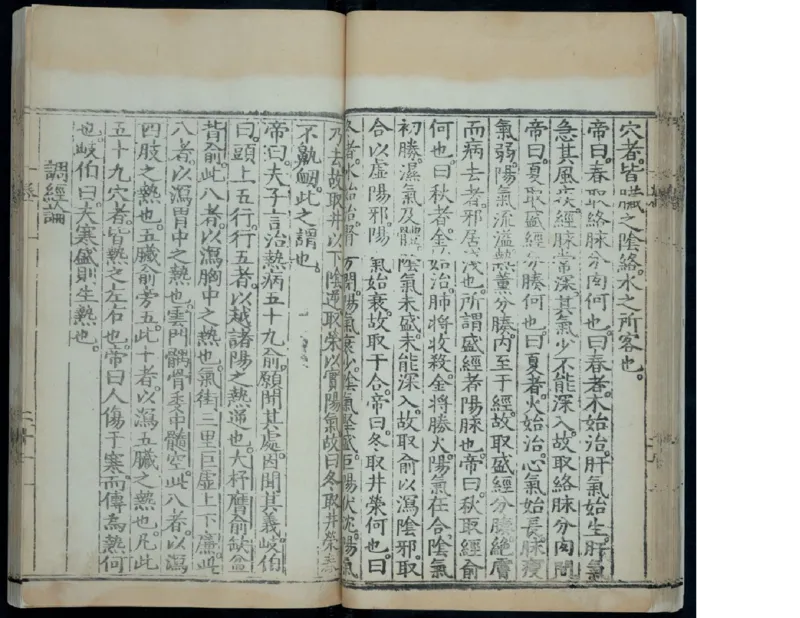 穴者。皆臟之陰絡。水之所客也。
帝曰。春取絡脉分肉何也。曰春者。木始治。肝氣始生。肝氣
急。其風疾。經脉常深。其氣少。不能深入。故取絡脉分肉間。
帝曰。夏取盛經分腠何也。曰夏者。火始治。心氣始長。脉瘦
氣弱。陽氣流溢。熱熏分腠。内至于經。故取盛經分腠。絶膚
而病去者。邪居淺也。所謂盛經者。陽脉也。帝曰。秋取經俞
何也。曰秋者。金始治。肺將收殺。金將勝火。陽氣在合。陰氣
初勝。濕氣及體。陰氣未盛。未能深入。故取俞以瀉陰邪。取
合以虛陽邪。陽氣始衰。故取于合。帝曰。冬取井榮何也。曰
冬者。水始治。腎方閉。陽氣衰少。陰氣堅盛。巨陽伏沉。陽氣
乃去。故取井以下陰逆。取榮以實陽氣。故曰冬取井榮。春
不鼽衄。此之謂也。
帝曰。夫子言治熱病五十九俞。願聞其處。因聞其義。岐伯
曰。頭上五行。行五者。以越諸陽之熱逆也。大杼膺俞缺盆
背俞。此八者。以瀉胸中之熱也。氣街三里巨虛上下廉。此
八者。以瀉胃中之熱也。雲門髃骨委中髓空。此八者。以瀉
四肢之熱也。五臟俞旁五。此十者。以瀉五臟之熱也。凡此
五十九穴者。皆熱之左右也。帝曰。人傷于寒。而傳為熱何
也。岐伯曰。夫寒盛則生熱也。
調經論